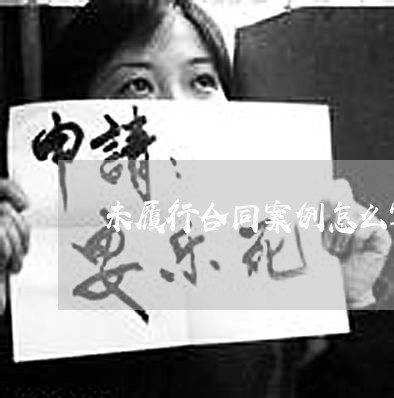 申請：
未履行合同案例怎么
安乐死